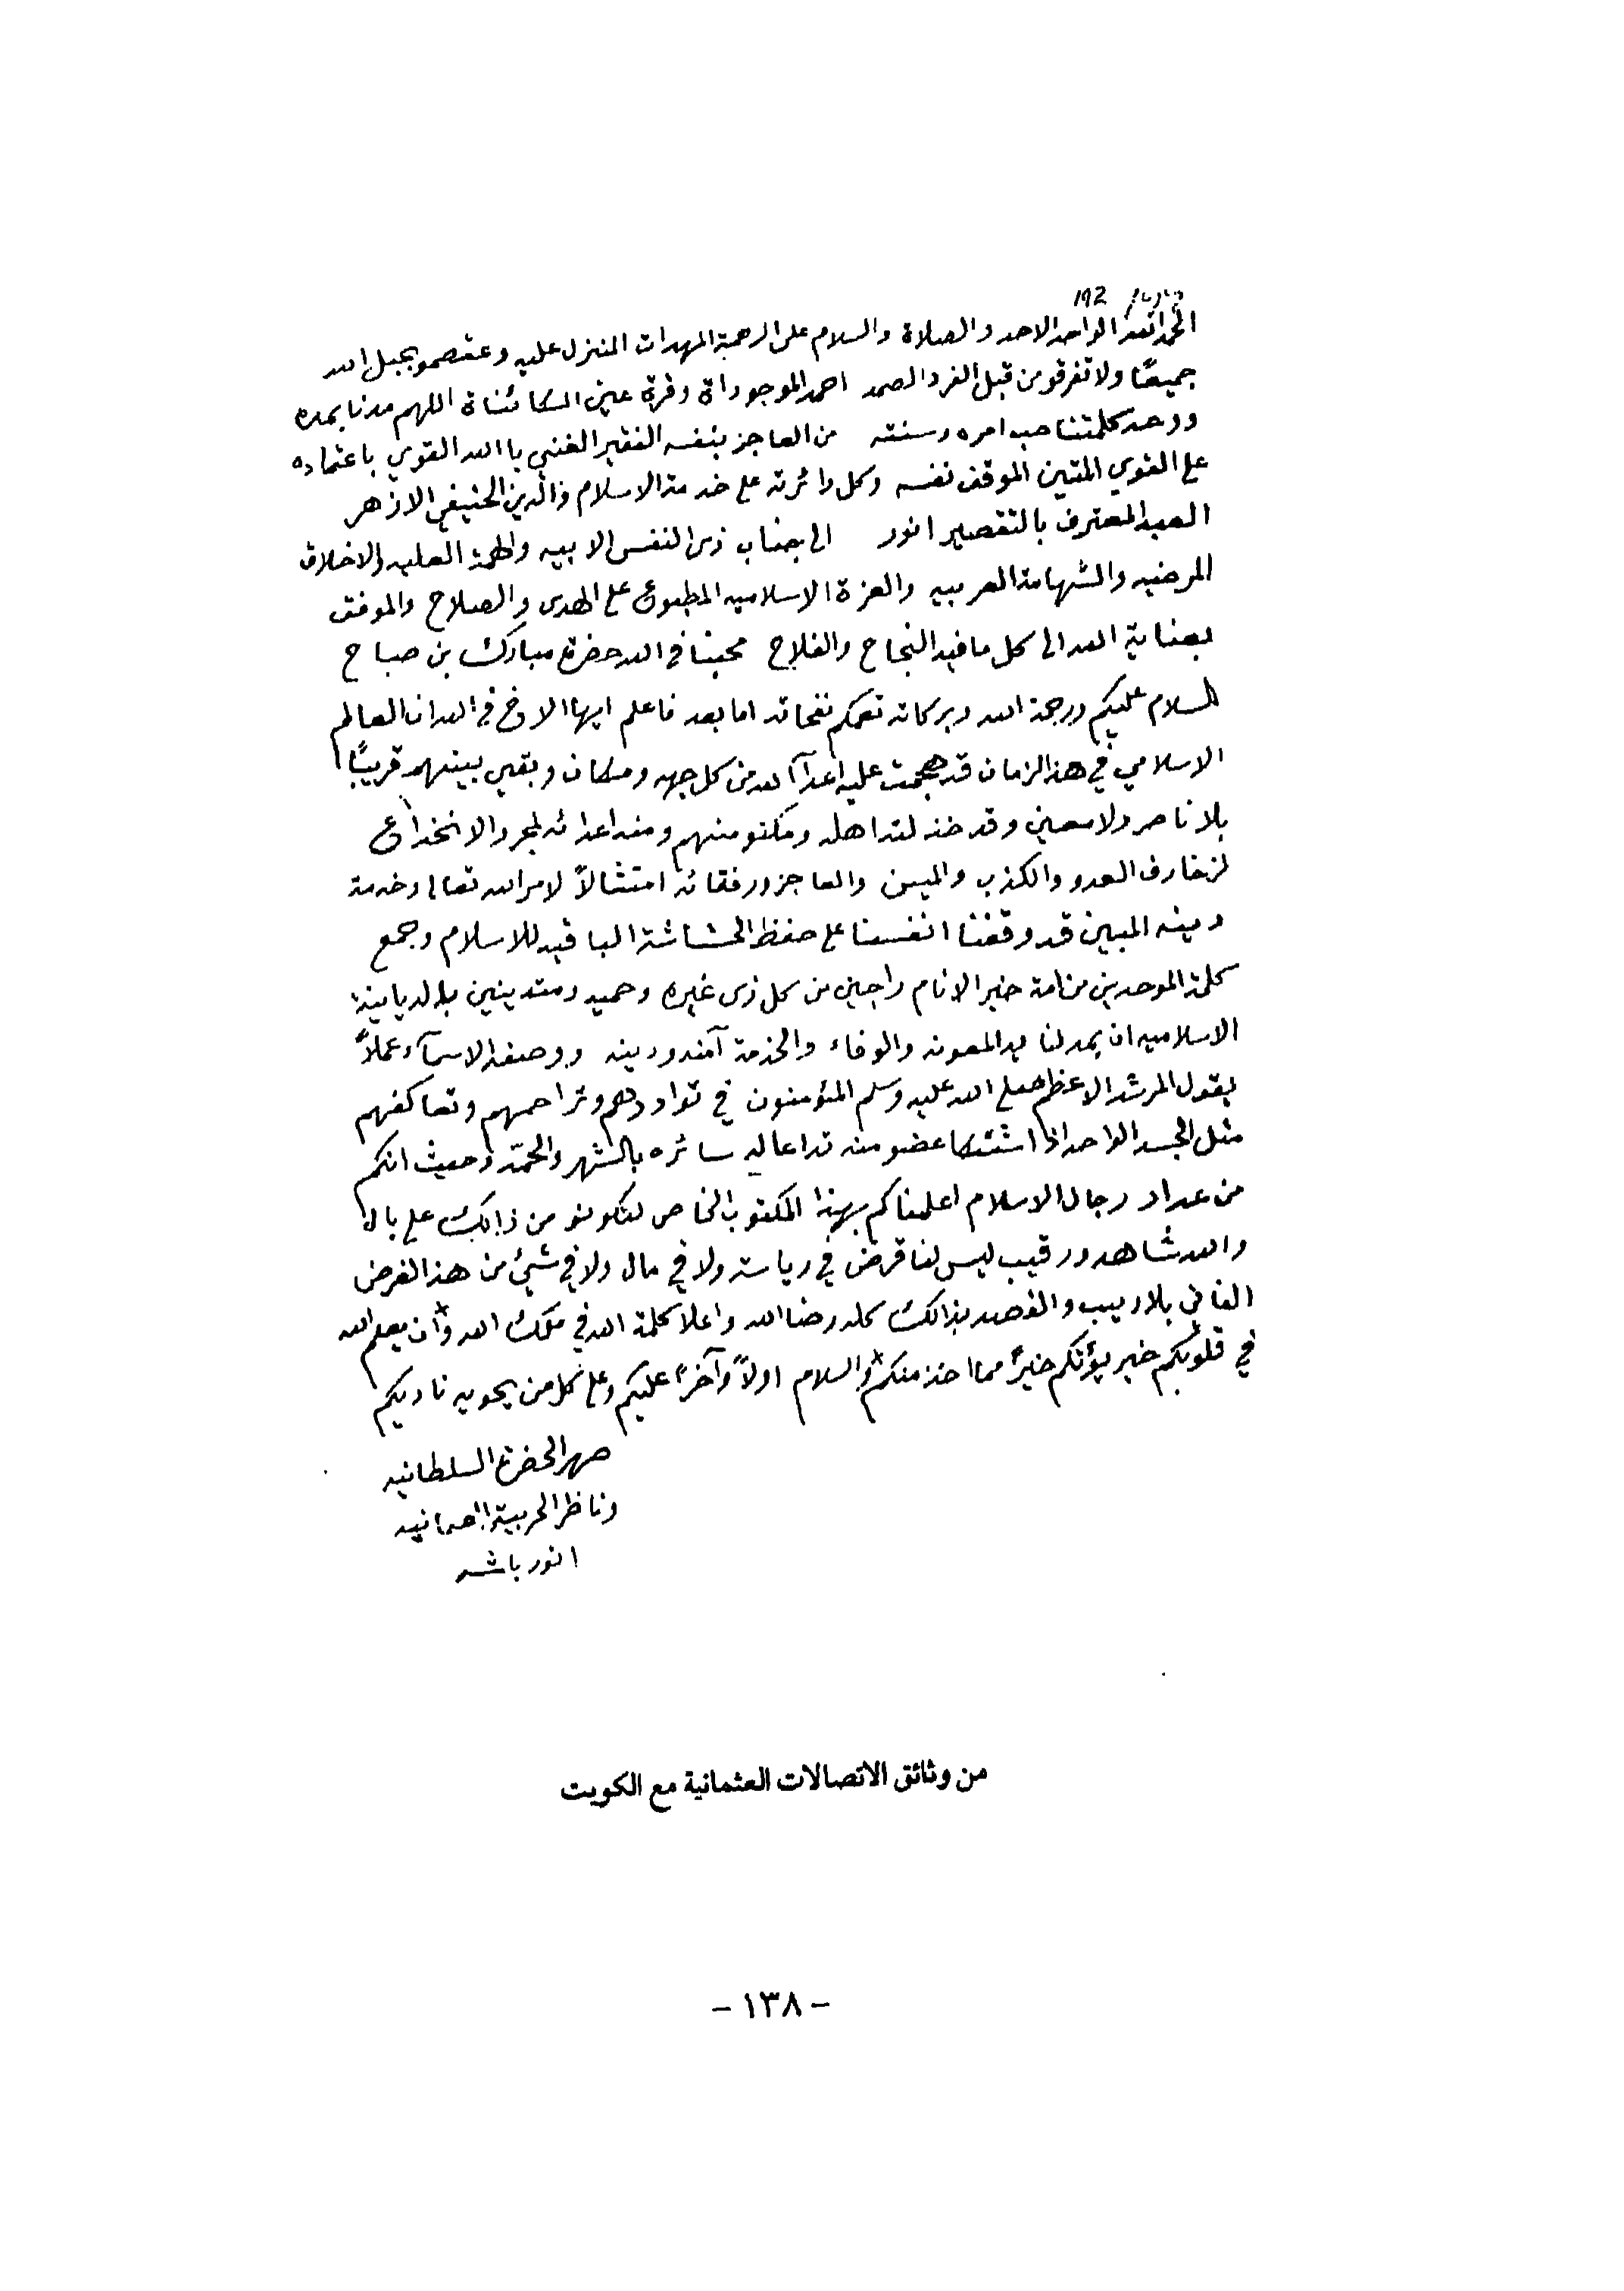 192
الحمد لله الواحد الاحد والصلاة والسلام على الرحمة المهدات المنزل عليه وعتصمو بحبل الله
جميعًا ولا تفرقو من قبل الفرد الصمد احمد الموجوداة وقرة عين الكائناة اللهم مدنا بمدده
ووحد كلمتنا حب امره وسنته من العاجز بنفسه الفقير الغني باالله القوي باعتماده
على القوي المتين الموقف نفسه وكل دائرته على خدمة الاسلام والدين الحنيفي الازهر
العبد المعترف بالتقصير انور الى جناب ذى النفس الابيه والهمة العليه والاخلاق
المرضيه والشهامة العربيه والعزة الاسلاميه المطبوع على الهدى والصلاح والموفق
بعناية الله الى كل ما فيه النجاح والفلاح محبنا في الله حضرة مبارك بن صباح
السلام عليكم ورحمة الله وبركاته تعمكم نفحاته اما بعد فاعلم ايها الاخ في الله ان العالم
الاسلامي في هذا الزمان قد هجمت عليه اعدآ الله من كل جهه ومكان وبقي بينهم قريبًا
بلا ناصر ولا معين وقد خذلته اهله ومكنو منهم ومنه اعدائه لمجرد الانخداع
لزخارف العدو والكذب والمين والعاجز ورفقائه امتثالاً لامر الله تعالى وخدمة
دينه المبين قد وقفنا انفسنا على حفظ الحشاشة الباقيه للاسلام وجمع
كلمة الموحدين من امة خير الانام راجين من كل ذى غيره وحميه ومتدينين بالديانة
الاسلاميه ان يمد لنا يد المعونه والوفاء والخدمة آمنه ودينه ووصفه الاسمآ عملاً
بقول المرشد الاعظم صلى الله عليه وسلم المئومنون في تواددهم وتراحمهم وتعاكفهم
مثل الجسد الواحد اذا اشتكا عضو منه تداعا له سائره بالشهر والحمّه وحيث انكم
من عداد رجال الاسلام اعلمناكم بهذا المكتوب الخاص لتكونو من ذالك على بال
والله شاهد ورقيب ليس لنا قرض في رياسة ولا في مال ولا في شيئ من هذا الغرض
الفاني بلا ريب والقصد بذالك كله رضا الله واعلا كلمة الله في ملك الله وان يعلم الله
في قلوبكم خير يؤتكم خيرًا مما اخذ منكم والسلام اولاً وآخرًا عليكم وعلى كل من يحويه ناديكم
صهر الحضرة السلطانيه
وناظر الحربية
انور باشه
من وثائق الاتصالات العثمانية مع الكويت
- ١٣٨ -